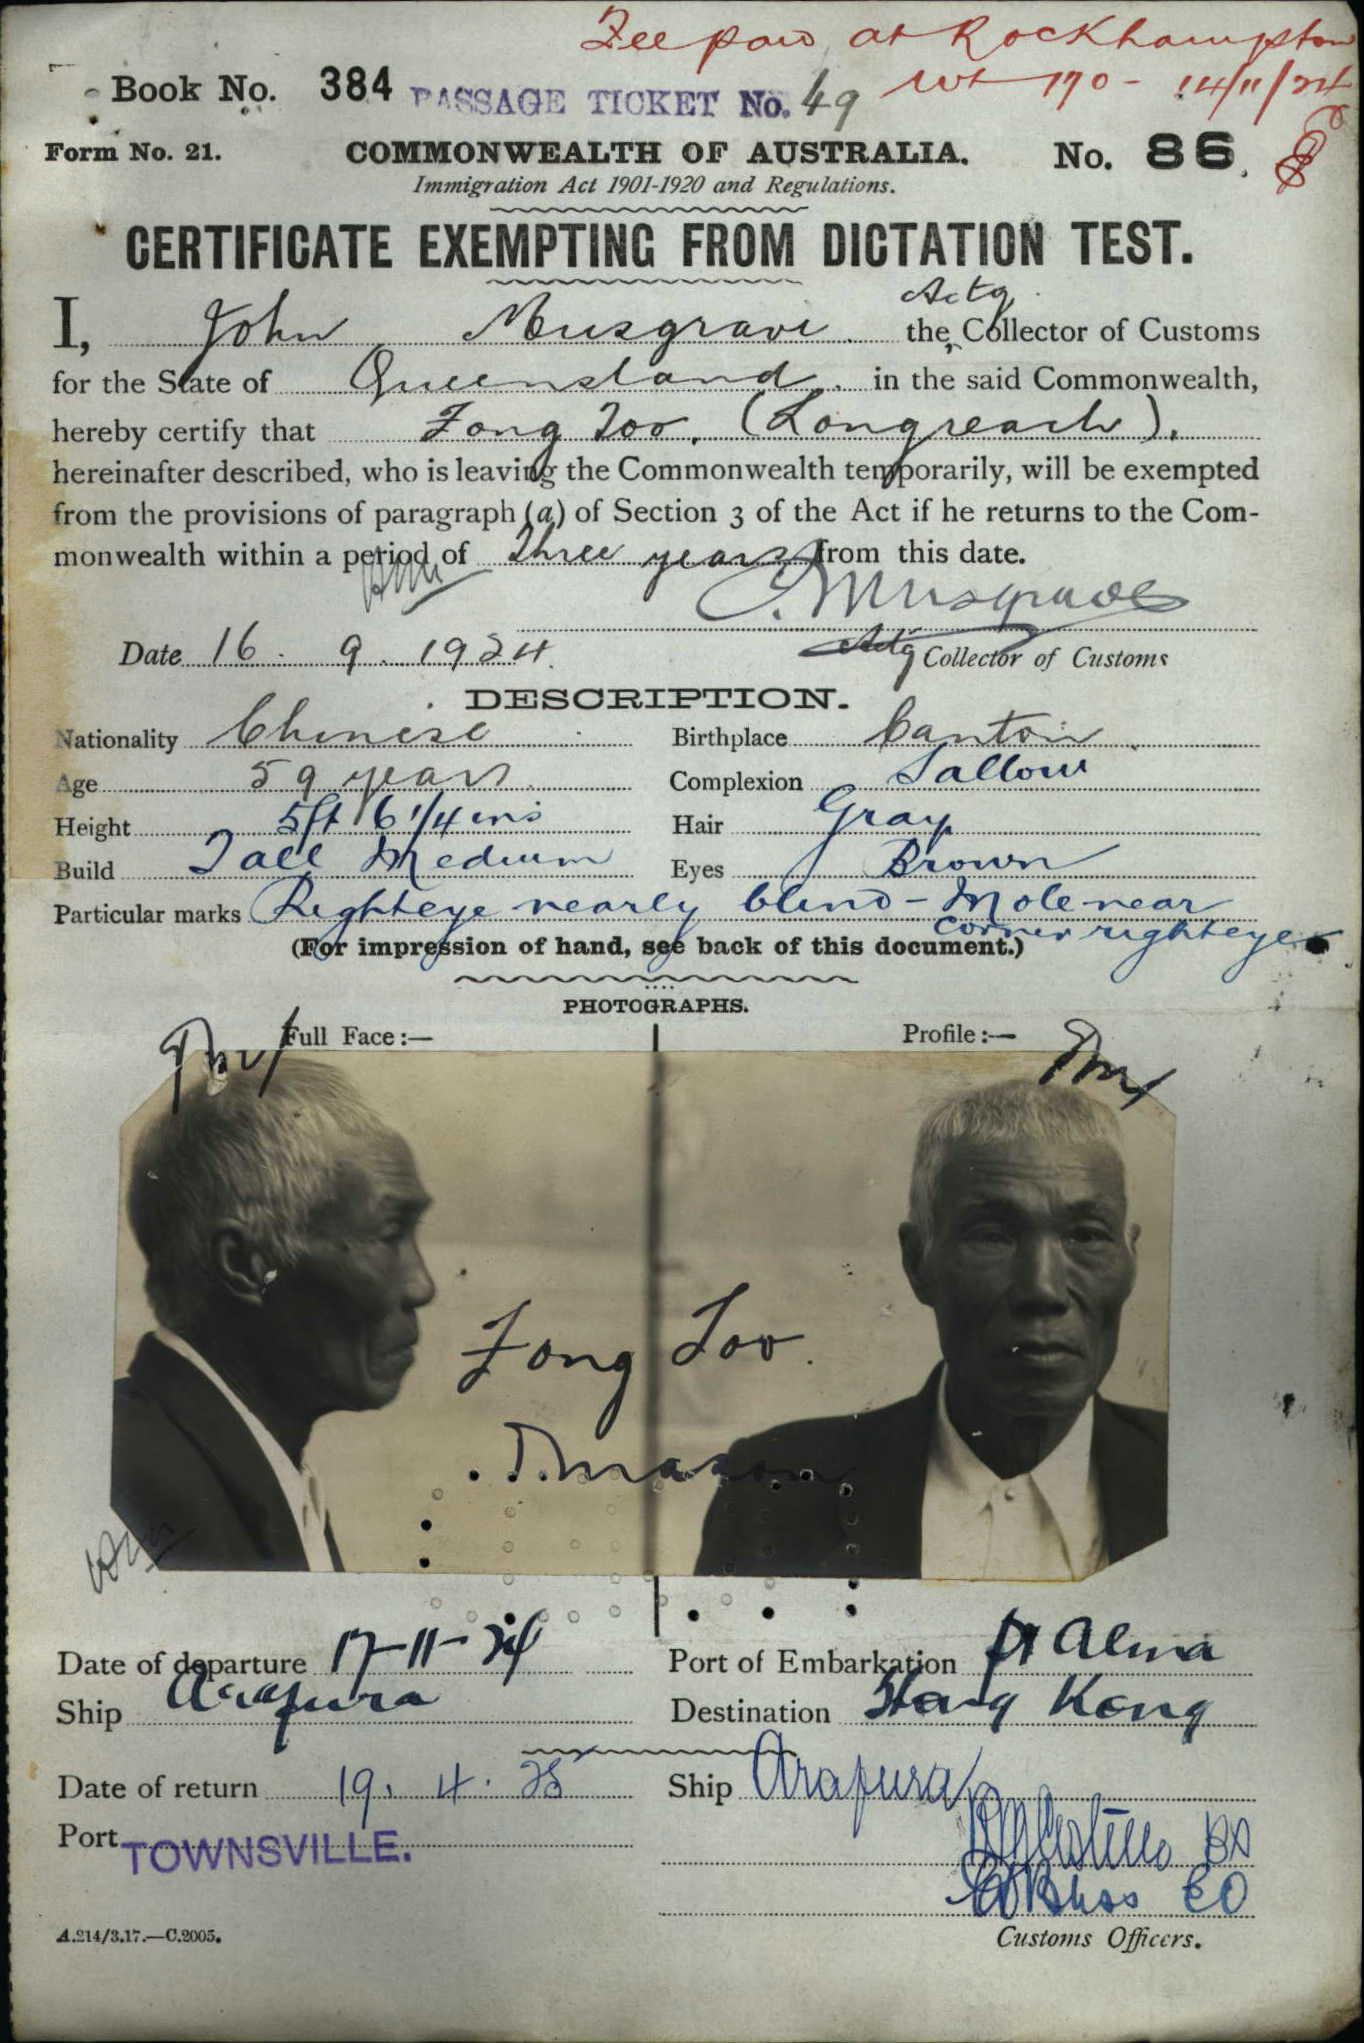 Fee paid at Rockhampton
Book No. 384 PASSAGE TICKET No. 49 170 - 14/11/24
Form No. 21. COMMONWEALTH OF AUSTRALIA. No. 86.
Immigration Act 1901-1920 and Regulations.
CERTIFICATE EXEMPTING FROM DICTATION TEST.
Actg
I, John Musgrave the Collector of Customs
for the State of Queensland in the said Commonwealth,
hereby certify that Fong Foo. (Longreach).
hereinafter described, who is leaving the Commonwealth temporarily, will be exempted
from the provisions of paragraph (a) of Section 3 of the Act if he returns to the Com-
monwealth within a period of Three years from this date.
Musgrave
Date 16. 9. 1924. Actg Collector of Customs
DESCRIPTION.
Nationality Chinese Birthplace Canton
Age 59 years Complexion Sallow
Height 5ft 6 1/4 ins Hair Gray
Build Tall Medium Eyes Brown
Particular marks Right eye nearly blind - Mole near
corner right eye
(For impression of hand, see back of this document.)
PHOTOGRAPHS.
Full Face:— Profile:—
Fong Foo.
Date of departure 17-11-24 Port of Embarkation Pt Alma
Ship Arafura Destination Hong Kong
Date of return 19. 4. 25 Ship Arafura
Port TOWNSVILLE.
A.214/3.17.—C.2005. Customs Officers.